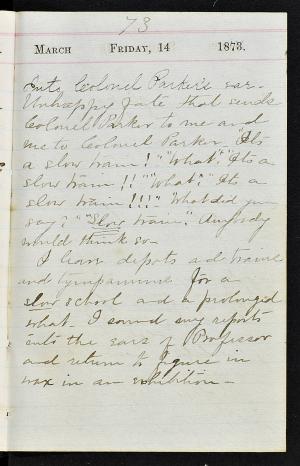 73
MARCH FRIDAY, 14 1873.
Into Colonel Parker's ear.
Unhappy fate that sends
Colonel Parker to me and
me to Colonel Parker. "It's
a slow train!" "What"? "It's a
slow train!!" "What"? "It's a
slow train!!!" "What did you
say?" "Slow train". Anybody
would think so.
I leave depots and trains
and tympanums for a
slow school and a prolonged
what. I sound my reports
into the ears of Professor
and return to figure in
wax in an exhibition.